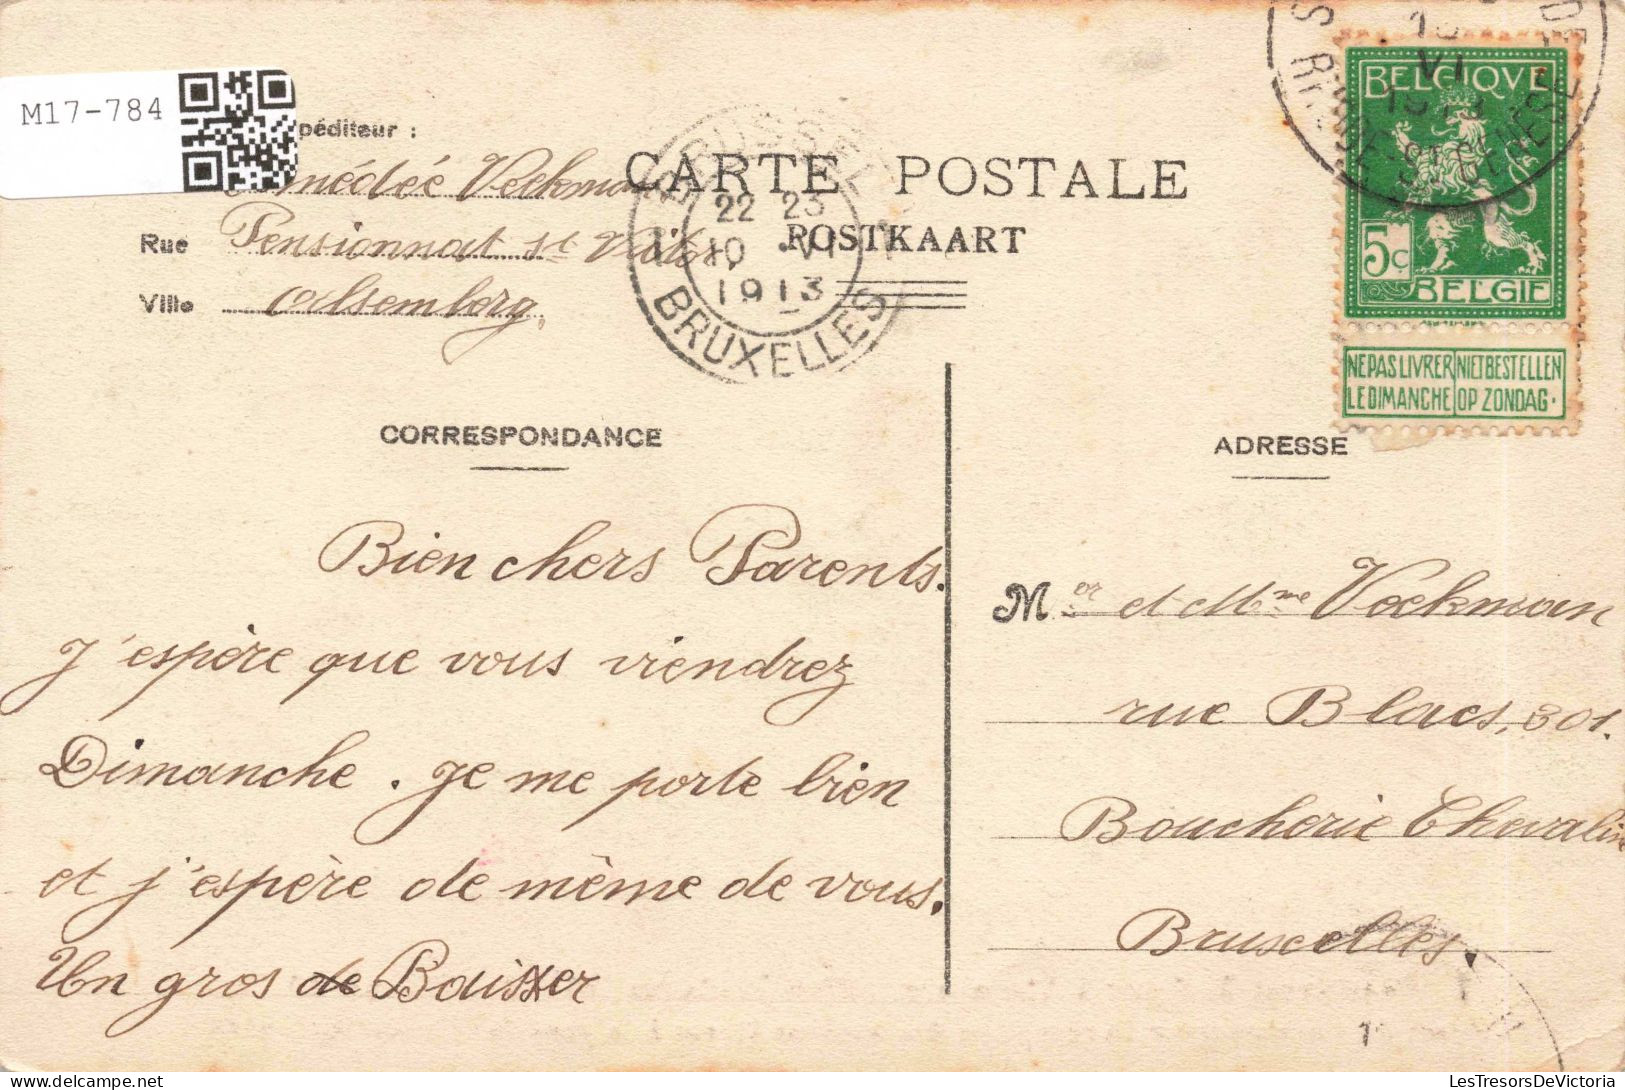 M17-784
péditeur :
CARTE POSTALE
POSTKAART
Rue Pensionnat St Victor,
Ville Alsemberg,
BRUSSEL
22 23
10 VI
1913
BRUXELLES
VI
RHODE-ST-GENESE
BELGIQUE
5c
BELGIE
NE PAS LIVRER NIET BESTELLEN
LE DIMANCHE OP ZONDAG.
CORRESPONDANCE
ADRESSE
Bien chers Parents.
J'espère que vous viendrez
Dimanche. Je me porte bien
et j'espère de même de vous.
Un gros de Baisser
Mer et Mme Veckman
rue Blaes, 301.
Boucherie Chevaline
Bruxelles.
LesTresorsDeVictoria